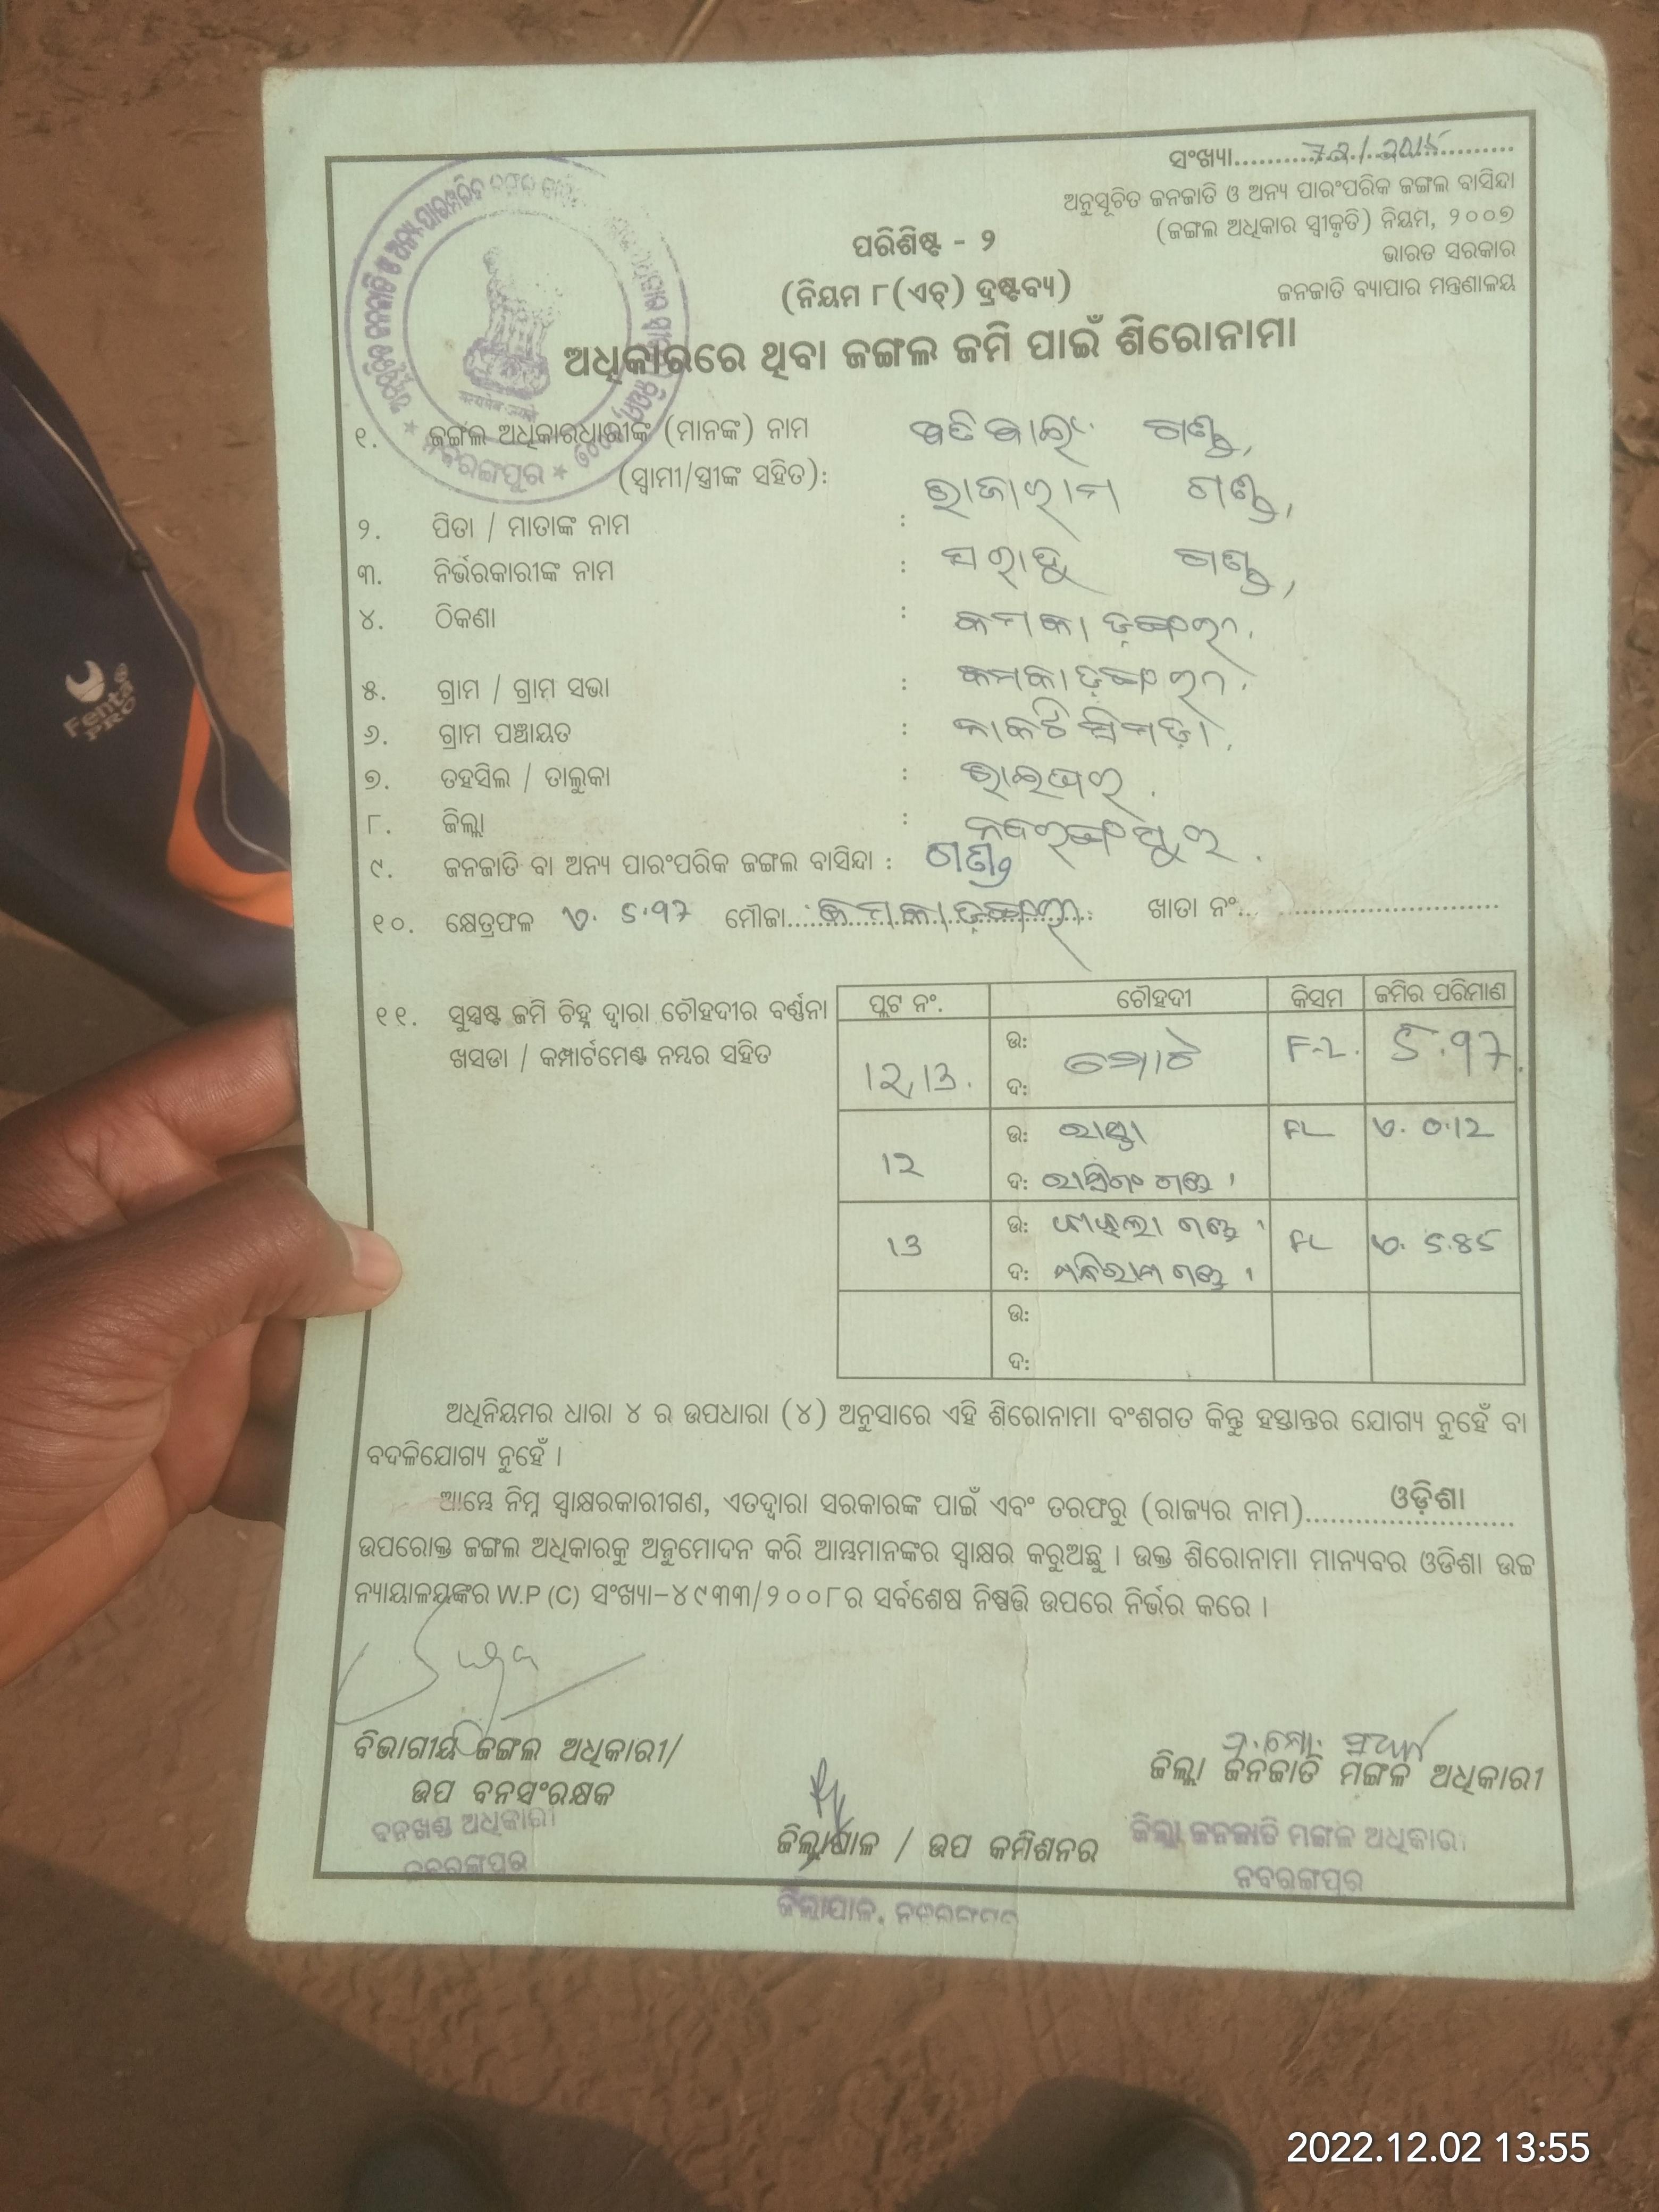 ସଂଖ୍ୟା
ଅନୁସୂଚିତ ଜନଜାତି ଓ ଅନ୍ୟ ପାରଂପରିକ ଜଙ୍ଗଲ ବାସିନ୍ଦା
(ଜଙ୍ଗଲ ଅଧିକାର ସ୍ୱୀକୃତି) ନିୟମ, ୨୦୦୭
ଭାରତ ସରକାର
ଜନଜାତି ବ୍ୟାପାର ମନ୍ତ୍ରଣାଳୟ
ପରିଶିଷ୍ଟ - ୨
(ନିୟମ ୮(ଏଚ୍) ଦ୍ରଷ୍ଟବ୍ୟ)
ଅଧିକାରରେ ଥିବା ଜଙ୍ଗଲ ଜମି ପାଇଁ ଶିରୋନାମା
ନବରଙ୍ଗପୁର
୧. ଜଙ୍ଗଲ ଅଧିକାରଧାରୀଙ୍କ (ମାନଙ୍କ) ନାମ ଗଣ୍ଡ,
(ସ୍ୱାମୀ/ସ୍ତ୍ରୀଙ୍କ ସହିତ): ରାଜାରାମ ଗଣ୍ଡ,
୨. ପିତା / ମାତାଙ୍କ ନାମ : ଗଣ୍ଡ,
୩. ନିର୍ଭରକାରୀଙ୍କ ନାମ :
୪. ଠିକଣା :
୫. ଗ୍ରାମ / ଗ୍ରାମ ସଭା :
୬. ଗ୍ରାମ ପଞ୍ଚାୟତ :
୭. ତହସିଲ / ତାଲୁକା : ରାଇଘର.
୮. ଜିଲ୍ଲା : ନବରଙ୍ଗପୁର.
୯. ଜନଜାତି ବା ଅନ୍ୟ ପାରଂପରିକ ଜଙ୍ଗଲ ବାସିନ୍ଦା : ଗଣ୍ଡ
୧୦. କ୍ଷେତ୍ରଫଳ ଏ. 5.97 ମୌଜା ଖାତା ନଂ.
୧୧. ସୁସ୍ପଷ୍ଟ ଜମି ଚିହ୍ନ ଦ୍ୱାରା ଚୌହଦୀର ବର୍ଣ୍ଣନା
ଖସଡା / କମ୍ପାର୍ଟମେଣ୍ଟ ନମ୍ବର ସହିତ
ପ୍ଲଟ ନଂ. ଚୌହଦୀ କିସମ ଜମିର ପରିମାଣ
12,13. ଉ: ଦ: ମୋଟ F-L. 5.97
12 ଉ: ରାସ୍ତା FL ଏ. 0.12
ଦ: ରାମସିଂ ଗଣ୍ଡ ।
13 ଉ: ଗଣ୍ଡ । FL ଏ. 5.85
ଦ: ଗଣ୍ଡ ।
ଉ:
ଦ:
ଅଧିନିୟମର ଧାରା ୪ ର ଉପଧାରା (୪) ଅନୁସାରେ ଏହି ଶିରୋନାମା ବଂଶଗତ କିନ୍ତୁ ହସ୍ତାନ୍ତର ଯୋଗ୍ୟ ନୁହେଁ ବା
ବଦଳିଯୋଗ୍ୟ ନୁହେଁ ।
ଆମ୍ଭେ ନିମ୍ନ ସ୍ୱାକ୍ଷରକାରୀଗଣ, ଏତଦ୍ୱାରା ସରକାରଙ୍କ ପାଇଁ ଏବଂ ତରଫରୁ (ରାଜ୍ୟର ନାମ) ଓଡ଼ିଶା
ଉପରୋକ୍ତ ଜଙ୍ଗଲ ଅଧିକାରକୁ ଅନୁମୋଦନ କରି ଆମ୍ଭମାନଙ୍କର ସ୍ୱାକ୍ଷର କରୁଅଛୁ । ଉକ୍ତ ଶିରୋନାମା ମାନ୍ୟବର ଓଡିଶା ଉଚ୍ଚ
ନ୍ୟାୟାଳୟଙ୍କର W.P (C) ସଂଖ୍ୟା-୪୯୩୩/୨୦୦୮ର ସର୍ବଶେଷ ନିଷ୍ପତ୍ତି ଉପରେ ନିର୍ଭର କରେ ।
ବିଭାଗୀୟ ଜଙ୍ଗଲ ଅଧିକାରୀ/
ଉପ ବନସଂରକ୍ଷକ
ବନଖଣ୍ଡ ଅଧିକାରୀ
ନବରଙ୍ଗପୁର
ଜିଲ୍ଲାପାଳ / ଉପ କମିଶନର
ଜିଲ୍ଲାପାଳ, ନବରଙ୍ଗପୁର
ଜିଲ୍ଲା ଜନଜାତି ମଙ୍ଗଳ ଅଧିକାରୀ
ଜିଲ୍ଲା ଜନଜାତି ମଙ୍ଗଳ ଅଧିକାରୀ
ନବରଙ୍ଗପୁର
Fenta
PRO
2022.12.02 13:55